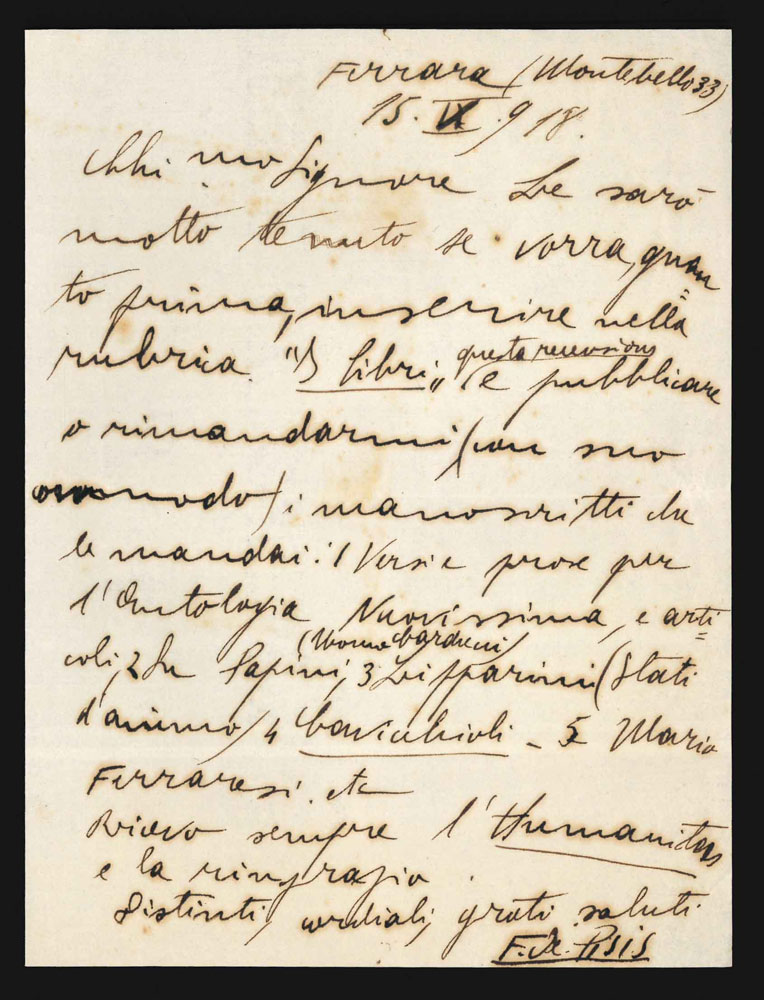 Ferrara (Montebello 33)
15. IX. 918.
Chi.mo Signore Le sarò
molto tenuto se vorrà, quan
to prima, inserire nella
rubrica "I libri" questa recensione
e pubblicare
o rimandarmi (con suo
comodo) i manoscritti che
le mandai: 1 Versi e prose per
l'Antologia Nuovissima, e arti
coli, 2 Su Papini, 3 Lipparini (Stati
d'animo) 4 Cavicchioli - 5 Mario
Ferraresi. etc
Ricevo sempre l'Humanitas
e la ringrazio.
Distinti, cordiali, grati saluti
F. de Pisis